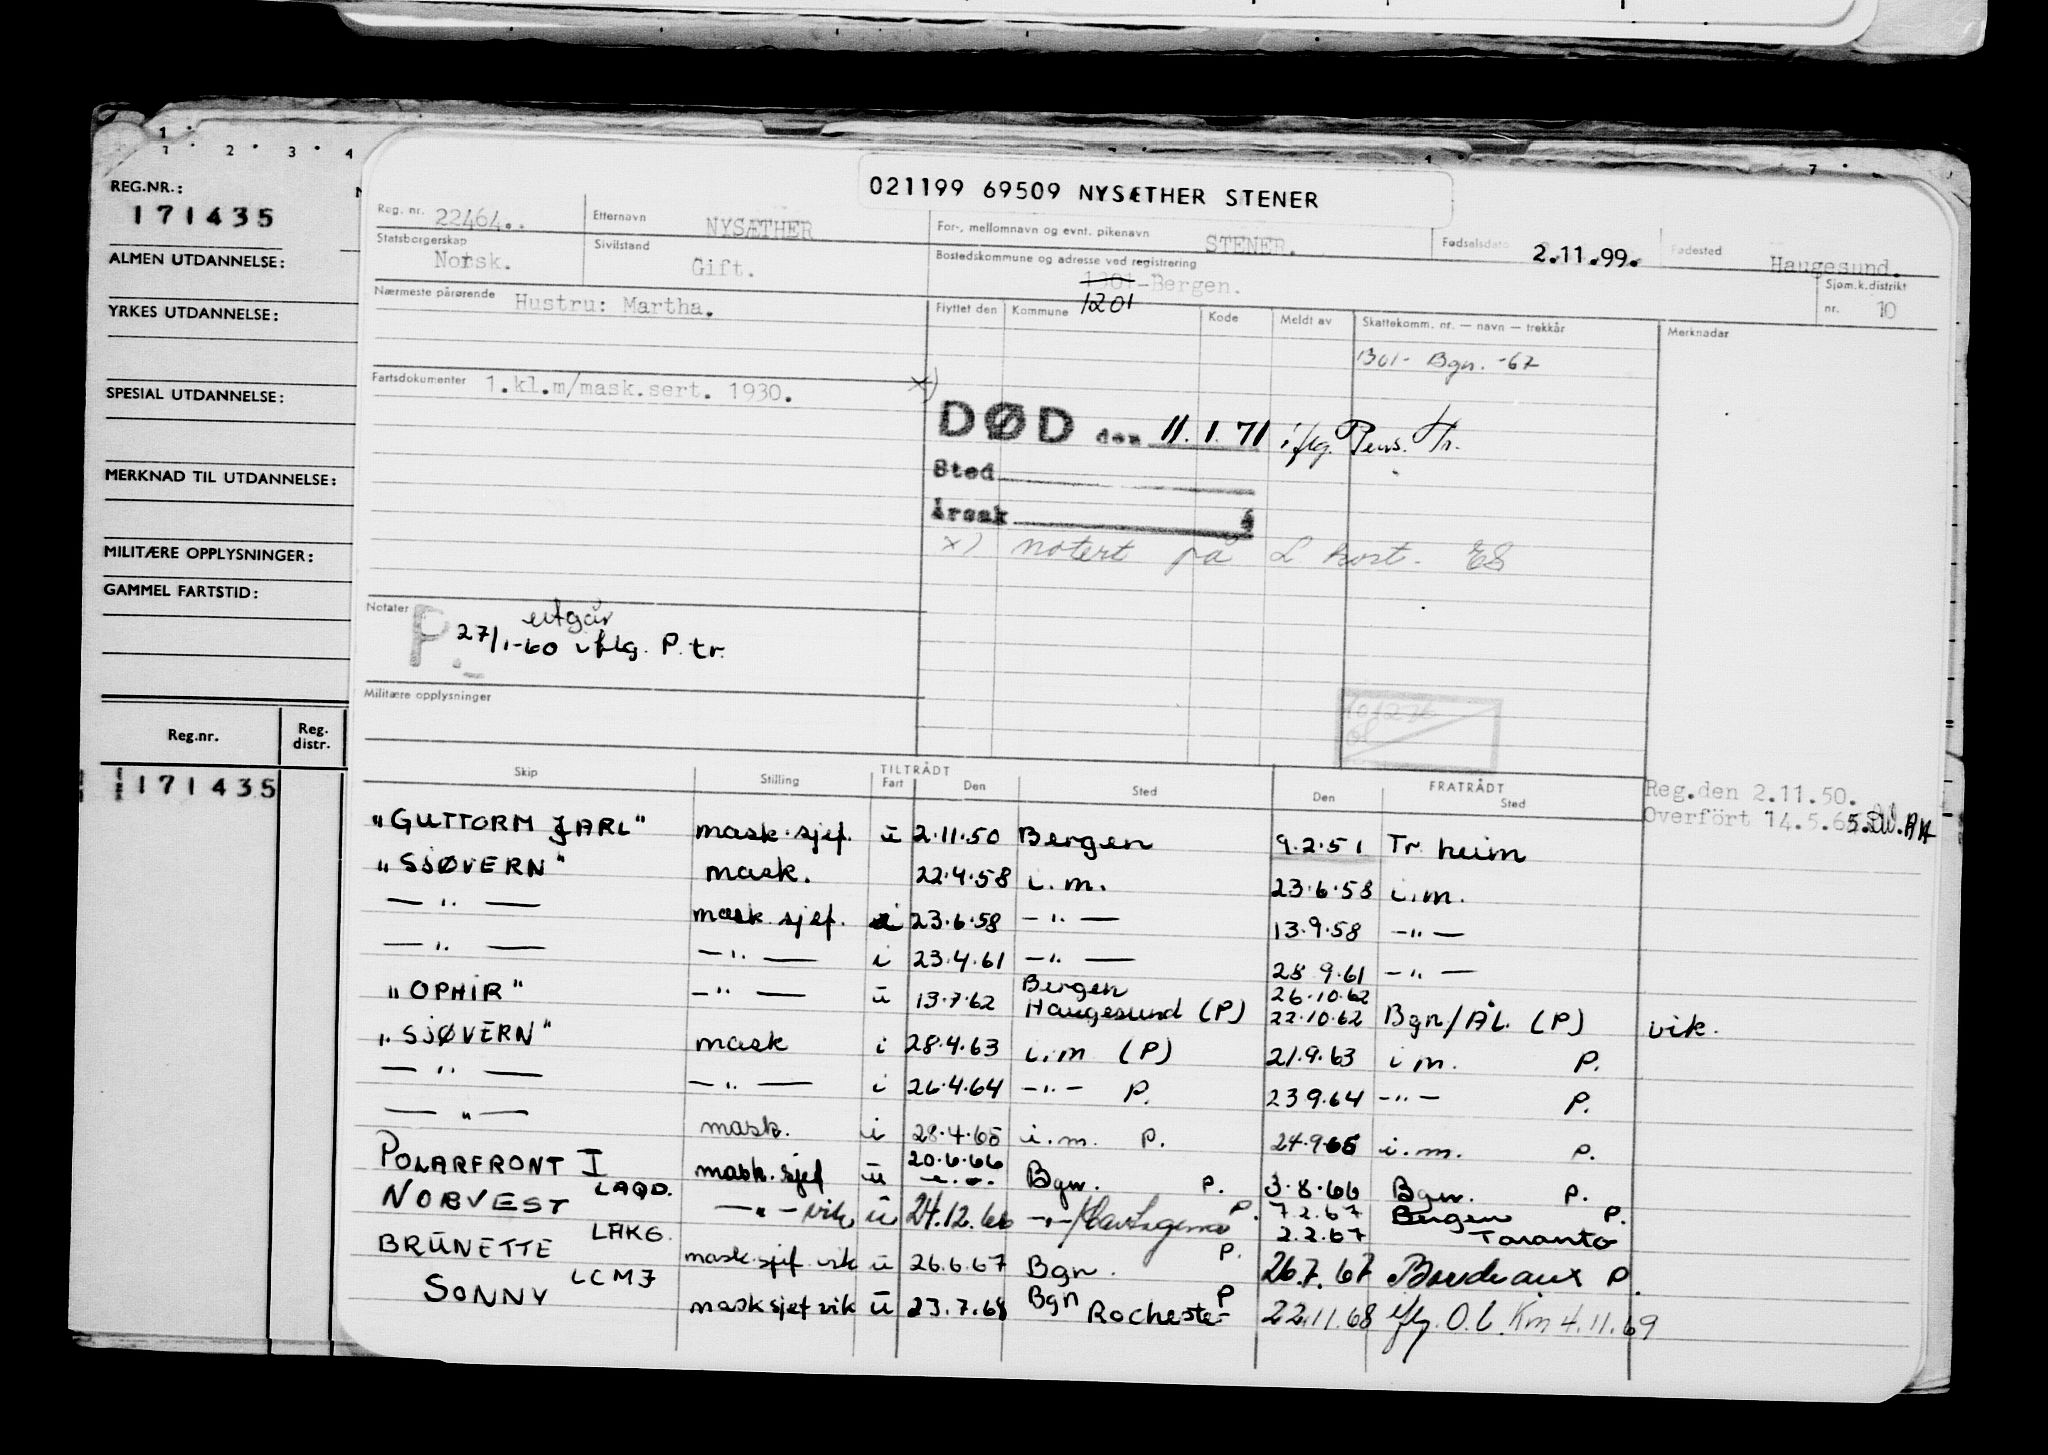 1 2 3 4
REG.NR.:
171435
ALMEN UTDANNELSE:
YRKES UTDANNELSE:
SPESIAL UTDANNELSE:
MERKNAD TIL UTDANNELSE:
MILITÆRE OPPLYSNINGER:
GAMMEL FARTSTID:
Reg.nr. Reg. distr.
171435
021199 69509 NYSÆTHER STENER
Reg. nr. 22464.. Etternavn NYSÆTHER For-, mellomnavn og evnt. pikenavn STENER. Fødselsdato 2.11.99. Fødested Haugesund.
Statsborgerskap Norsk. Sivilstand Gift. Bostedskommune og adresse ved registrering 1301-Bergen. 1201 Sjøm.k.distrikt nr. 10
Nærmeste pårørende Hustru: Martha. Flyttet den Kommune Kode Meldt av Skattekomm. nr. — navn — trekkår Merknader
1301- Bgn. -67
Fartsdokumenter 1.kl.m/mask.sert. 1930. x)
DØD den 11.1.71 iflg. Pens. Tr.
Sted
Årsak
x) notert på L kort. ES
Notater P 27/1-60 utgår iflg. P.tr.
Militære opplysninger
Skip Stilling TILTRÅDT Fart Den Sted FRATRÅDT Den Sted
Reg.den 2.11.50.
Overført 14.5.6
"GUTTORM JARL" mask.sjef. u 2.11.50 Bergen 9.2.51 Tr.heim
"SJØVERN" mask. 22.4.58 i.m. 23.6.58 i.m.
— " — mask.sjef. i 23.6.58 — " — 13.9.58 — " —
— " — — " — i 23.4.61 — " — 28.9.61 — " —
"OPHIR" — " — u 13.7.62 Bergen Haugesund (P) 26.10.62 22.10.62 Bgn/ÅL. (P) vik.
"SJØVERN" mask i 28.4.63 i.m (P) 21.9.63 i m. P.
— " — — " — i 26.4.64 — " — P. 23.9.64 — " — P.
— " — mask. i 28.4.65 i.m. P. 24.9.65 i.m. P.
POLARFRONT I LAQD. mask.sjef u 20.6.66 Bgn. P. 3.8.66 Bgn. P.
NORVEST LAKG. — " — vik u 24.12.66 — " — P. 7.2.67 2.2.67 Bergen P. Taranto
BRUNETTE LCMJ mask.sjef vik u 26.6.67 Bgn. P. 26.7.67 Bordeaux P.
SONNY mask sjef vik u 23.7.68 Bgn P Rochester 22.11.68 iflg. O.l. Km 4.11.69